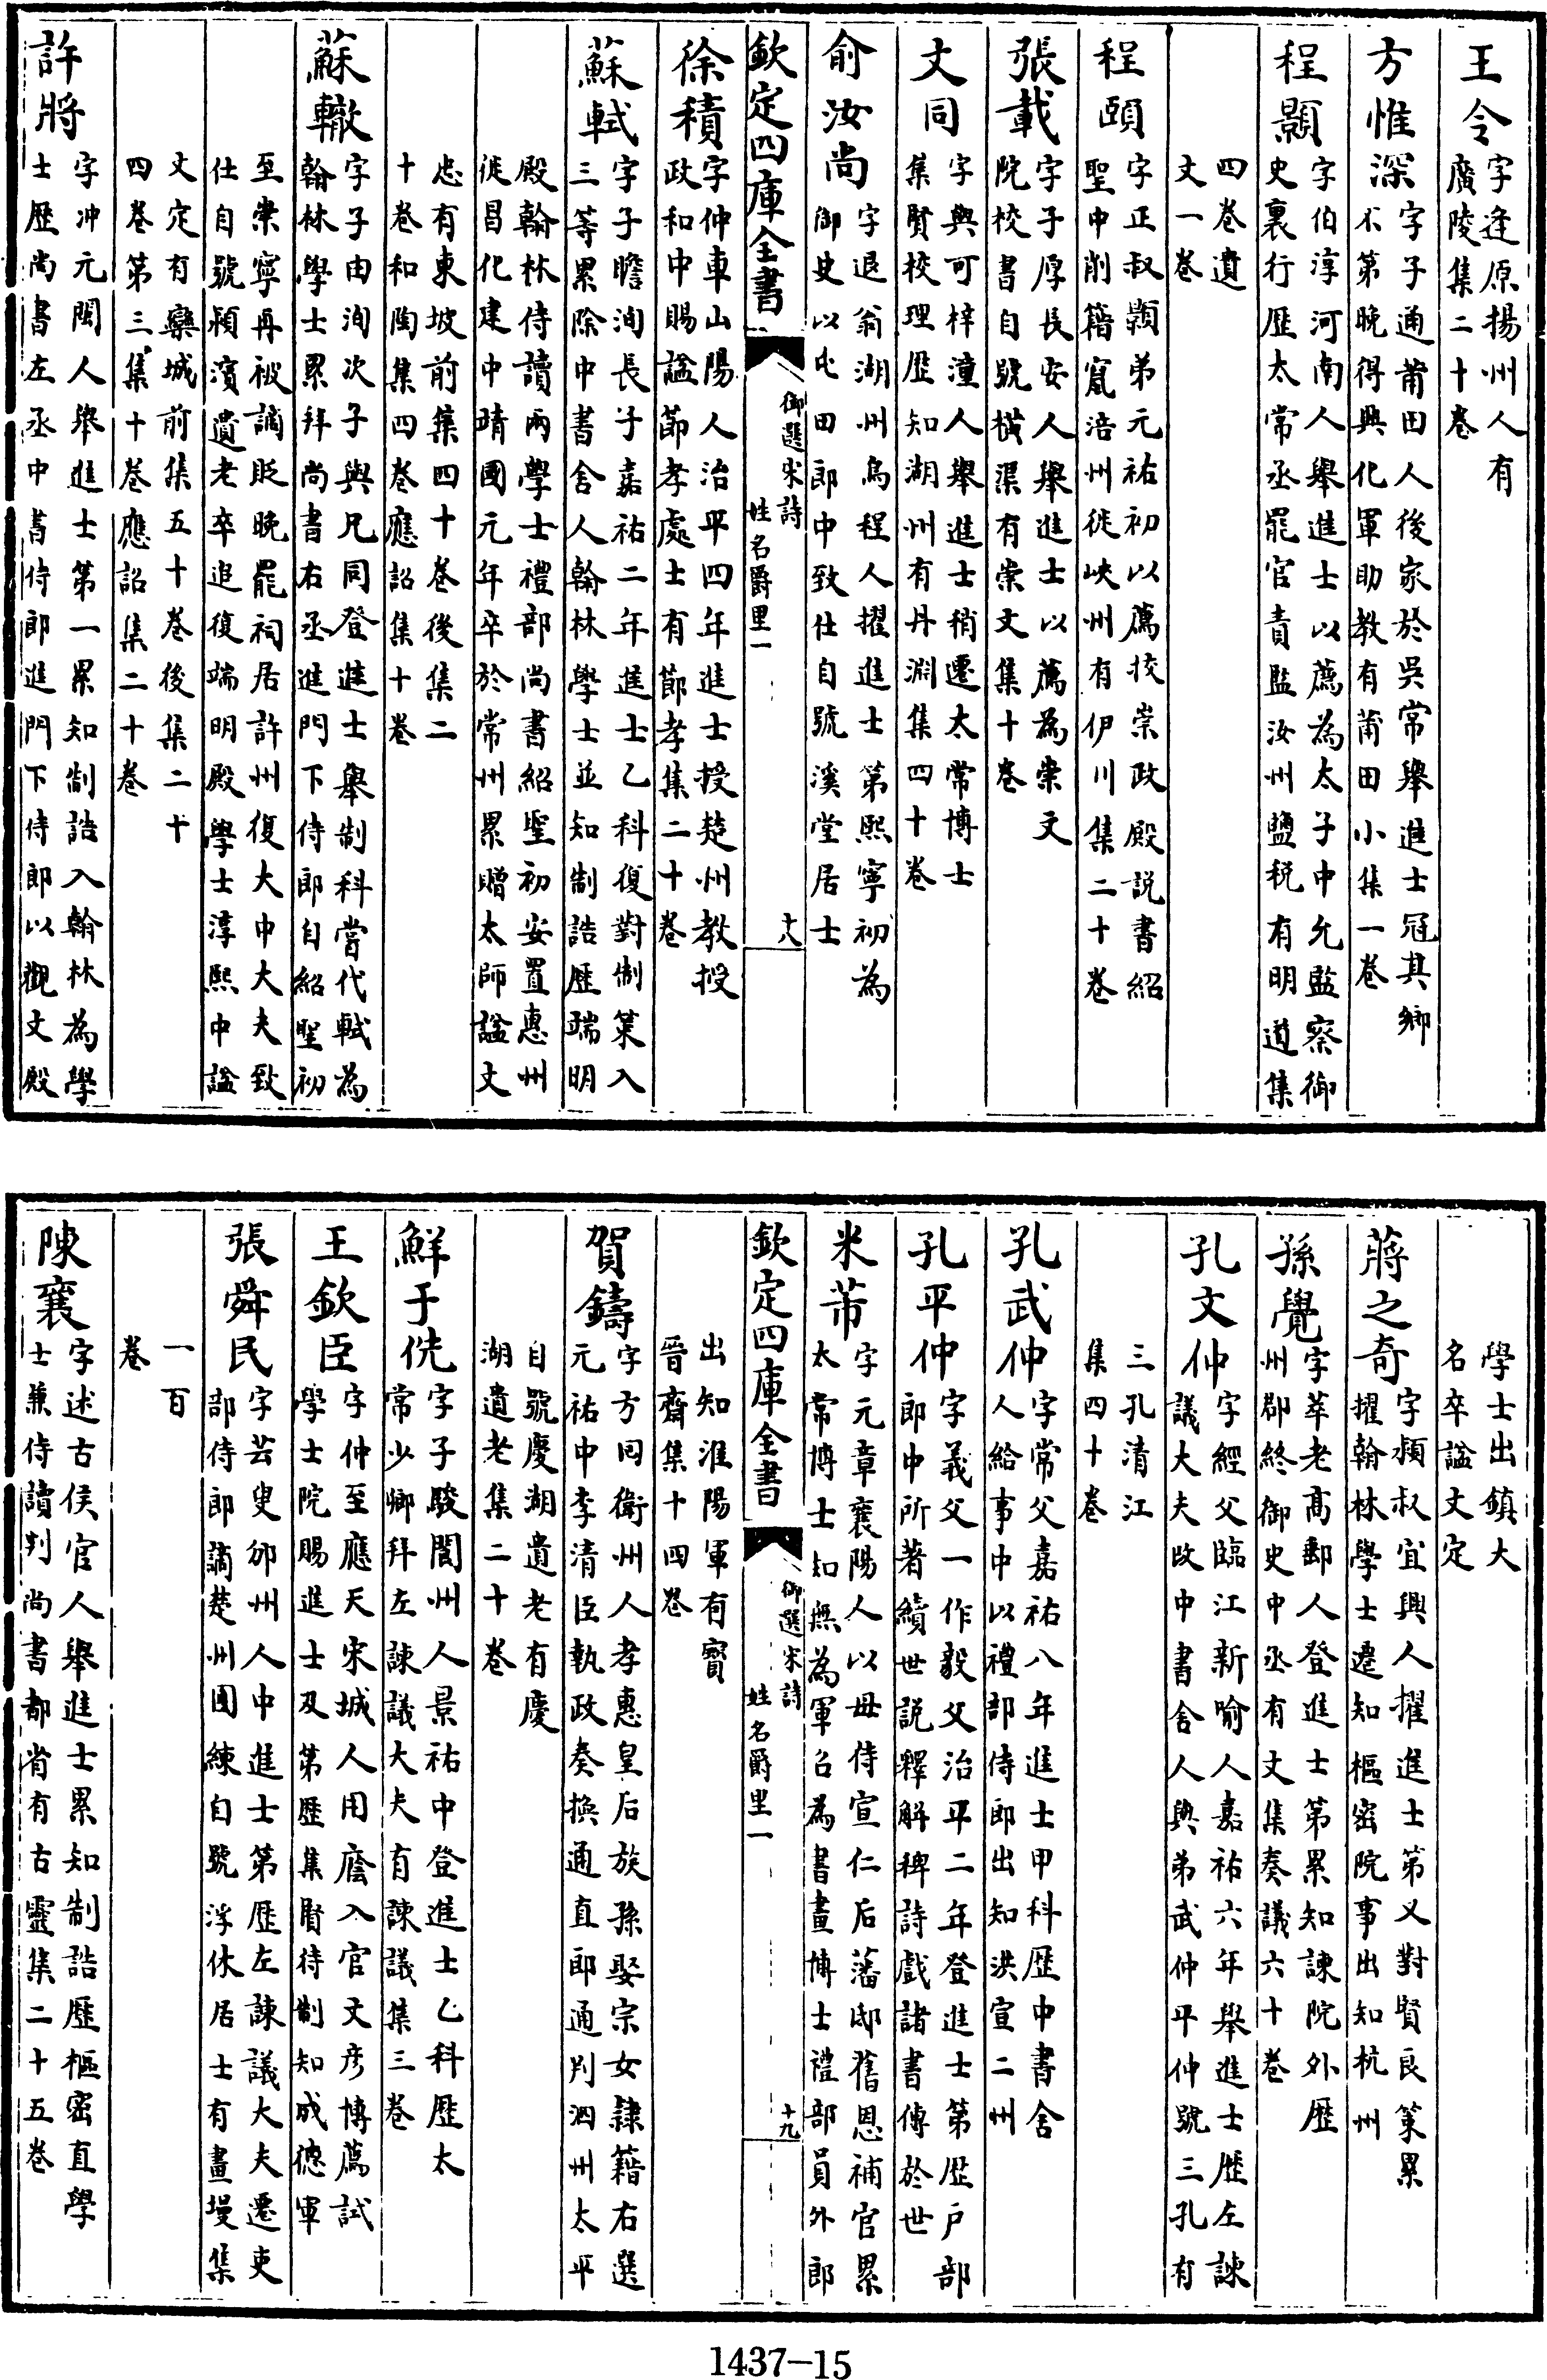 王令字逢原揚州人有
廣陵集二十卷
方惟深字子通莆田人後家於吳常舉進士冠其鄉
不第晚得興化軍助教有莆田小集一卷
程顥字伯淳河南人舉進士以薦為太子中允監察御
史裏行歷太常丞罷官責監汝州鹽稅有明道集
四卷遺
文一卷
程頤字正叔顥弟元祐初以薦授崇政殿説書紹
聖中削籍竄涪州徙峽州有伊川集二十卷
張載字子厚長安人舉進士以薦為崇文
院校書自號橫渠有崇文集十卷
文同字與可梓潼人舉進士稍遷太常博士
集賢校理歷知湖州有丹淵集四十卷
俞汝尚字退翁湖州烏程人擢進士第熙寧初為
御史以屯田郎中致仕自號溪堂居士
欽定四庫全書
御選宋詩
姓名爵里一
十八
徐積字仲車山陽人治平四年進士授楚州教授
政和中賜諡節孝處士有節孝集二十卷
蘇軾字子瞻洵長子嘉祐二年進士乙科復對制策入
三等累除中書舍人翰林學士並知制誥歷端明
殿翰林侍讀兩學士禮部尚書紹聖初安置惠州
徙昌化建中靖國元年卒於常州累贈太師諡文
忠有東坡前集四十卷後集二
十卷和陶集四卷應詔集十卷
蘇轍字子由洵次子與兄同登進士舉制科嘗代軾為
翰林學士累拜尚書右丞進門下侍郎自紹聖初
至崇寧再被謫貶晚罷祠居許州復大中大夫致
仕自號潁濱遺老卒追復端明殿學士淳熙中諡
文定有欒城前集五十卷後集二十
四卷第三集十卷應詔集二十卷
許將字冲元閩人舉進士第一累知制誥入翰林為學
士歷尚書左丞中書侍郎進門下侍郎以觀文殿
學士出鎮大
名卒諡文定
蔣之奇字潁叔宜興人擢進士第又對賢良策累
擢翰林學士遷知樞密院事出知杭州
孫覺字莘老高郵人登進士第累知諫院外歷
州郡終御史中丞有文集奏議六十卷
孔文仲字經父臨江新喻人嘉祐六年舉進士歷左諫
議大夫改中書舍人與弟武仲平仲號三孔有
三孔清江
集四十卷
孔武仲字常父嘉祐八年進士甲科歷中書舍
人給事中以禮部侍郎出知洪宣二州
孔平仲字義父一作毅父治平二年登進士第歷戶部
郎中所著續世説釋解稗詩戲諸書傳於世
米芾字元章襄陽人以母侍宣仁后藩邸舊恩補官累
太常博士知無為軍召為書畫博士禮部員外郎
欽定四庫全書
御選宋詩
姓名爵里一
十九
出知淮陽軍有寶
晉齋集十四卷
賀鑄字方回衛州人孝惠皇后族孫娶宗女隸籍右選
元祐中李清臣執政奏換通直郎通判泗州太平
自號慶湖遺老有慶
湖遺老集二十卷
鮮于侁字子駿閬州人景祐中登進士乙科歷太
常少卿拜左諫議大夫有諫議集三卷
王欽臣字仲至應天宋城人用廕入官文彥博薦試
學士院賜進士及第歷集賢待制知成德軍
張舜民字芸叟邠州人中進士第歷左諫議大夫遷吏
部侍郎謫楚州團練自號浮休居士有畫墁集
一百
卷
陳襄字述古侯官人舉進士累知制誥歷樞密直學
士兼侍讀判尚書都省有古靈集二十五卷
1437-15